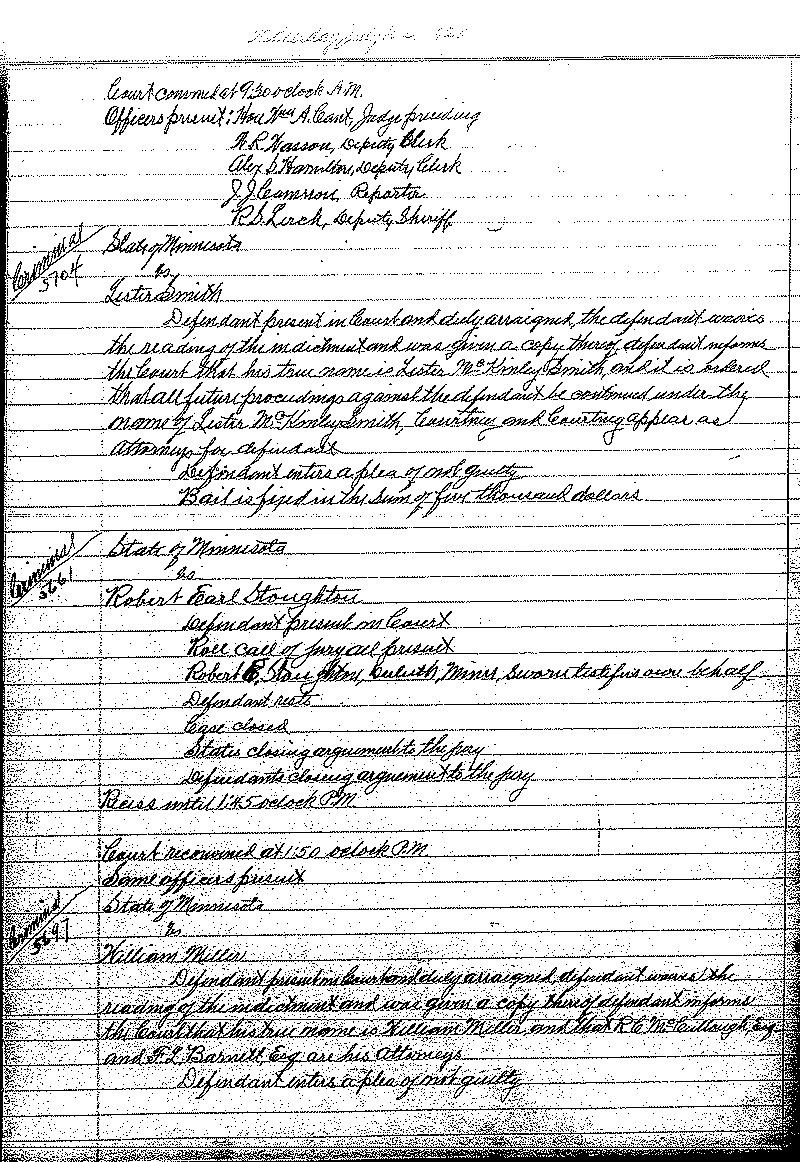 Court convened at 9:30 oclock A.M.
Officers present: Hon Wm A. Cant, Judge presiding
N.R. Wasson, Deputy Clerk
Alex S Hamilton, Deputy Clerk
J.J. Cameron, Reporter
R.S. Lerch, Deputy Sheriff
Criminal
5704
State of Minnesota
vs
Lester Smith
Defendant present in Court and duly arraigned, the defendant waives
the reading of the indictment and was given a copy thereof defendant informs
the Court that his true name is Lester McKinley Smith and it is ordered
that all future proceedings against the defendant be continued under the
name of Lester McKinley Smith, Courtney and Courtney appear as
Attorneys for defendant
Defendant enters a plea of not guilty
Bail is fixed in the sum of five thousand dollars
Criminal
5661
State of Minnesota
vs
Robert Earl Stoughton
Defendant present in Court
Roll call of jury all present
Robert E. Stoughton, Duluth, Minn, Sworn testifies own behalf
Defendant rests
Case closed
States closing arguement to the jury
Defendants closing arguement to the jury
Recess until 1:45 oclock P.M.
Court reconvened at 1:50 oclock P.M.
Same officers present
Criminal
5697
State of Minnesota
vs
William Miller
Defendant present in Court and duly arraigned, defendant waives the
reading of the indictment and was given a copy thereof defendant informs
the Court that his true name is William Miller and that R.C. McCullough, Esq
and F.L. Barnett, Esq are his Attorneys
Defendant enters a plea of not guilty